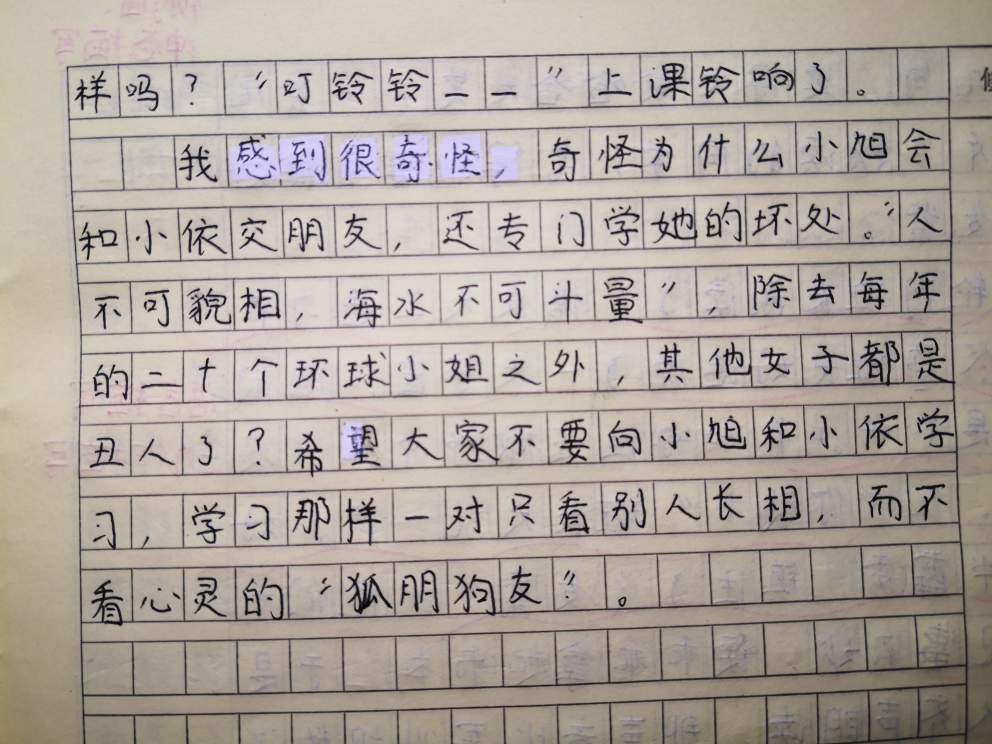 样吗？“叮铃铃——”上课铃响了。
我感到很奇怪，奇怪为什么小旭会
和小依交朋友，还专门学她的坏处。“人
不可貌相，海水不可斗量”，除去每年
的二十个环球小姐之外，其他女子都是
丑人了？希望大家不要向小旭和小依学
习，学习那样一对只看别人长相，而不
看心灵的“狐朋狗友”。